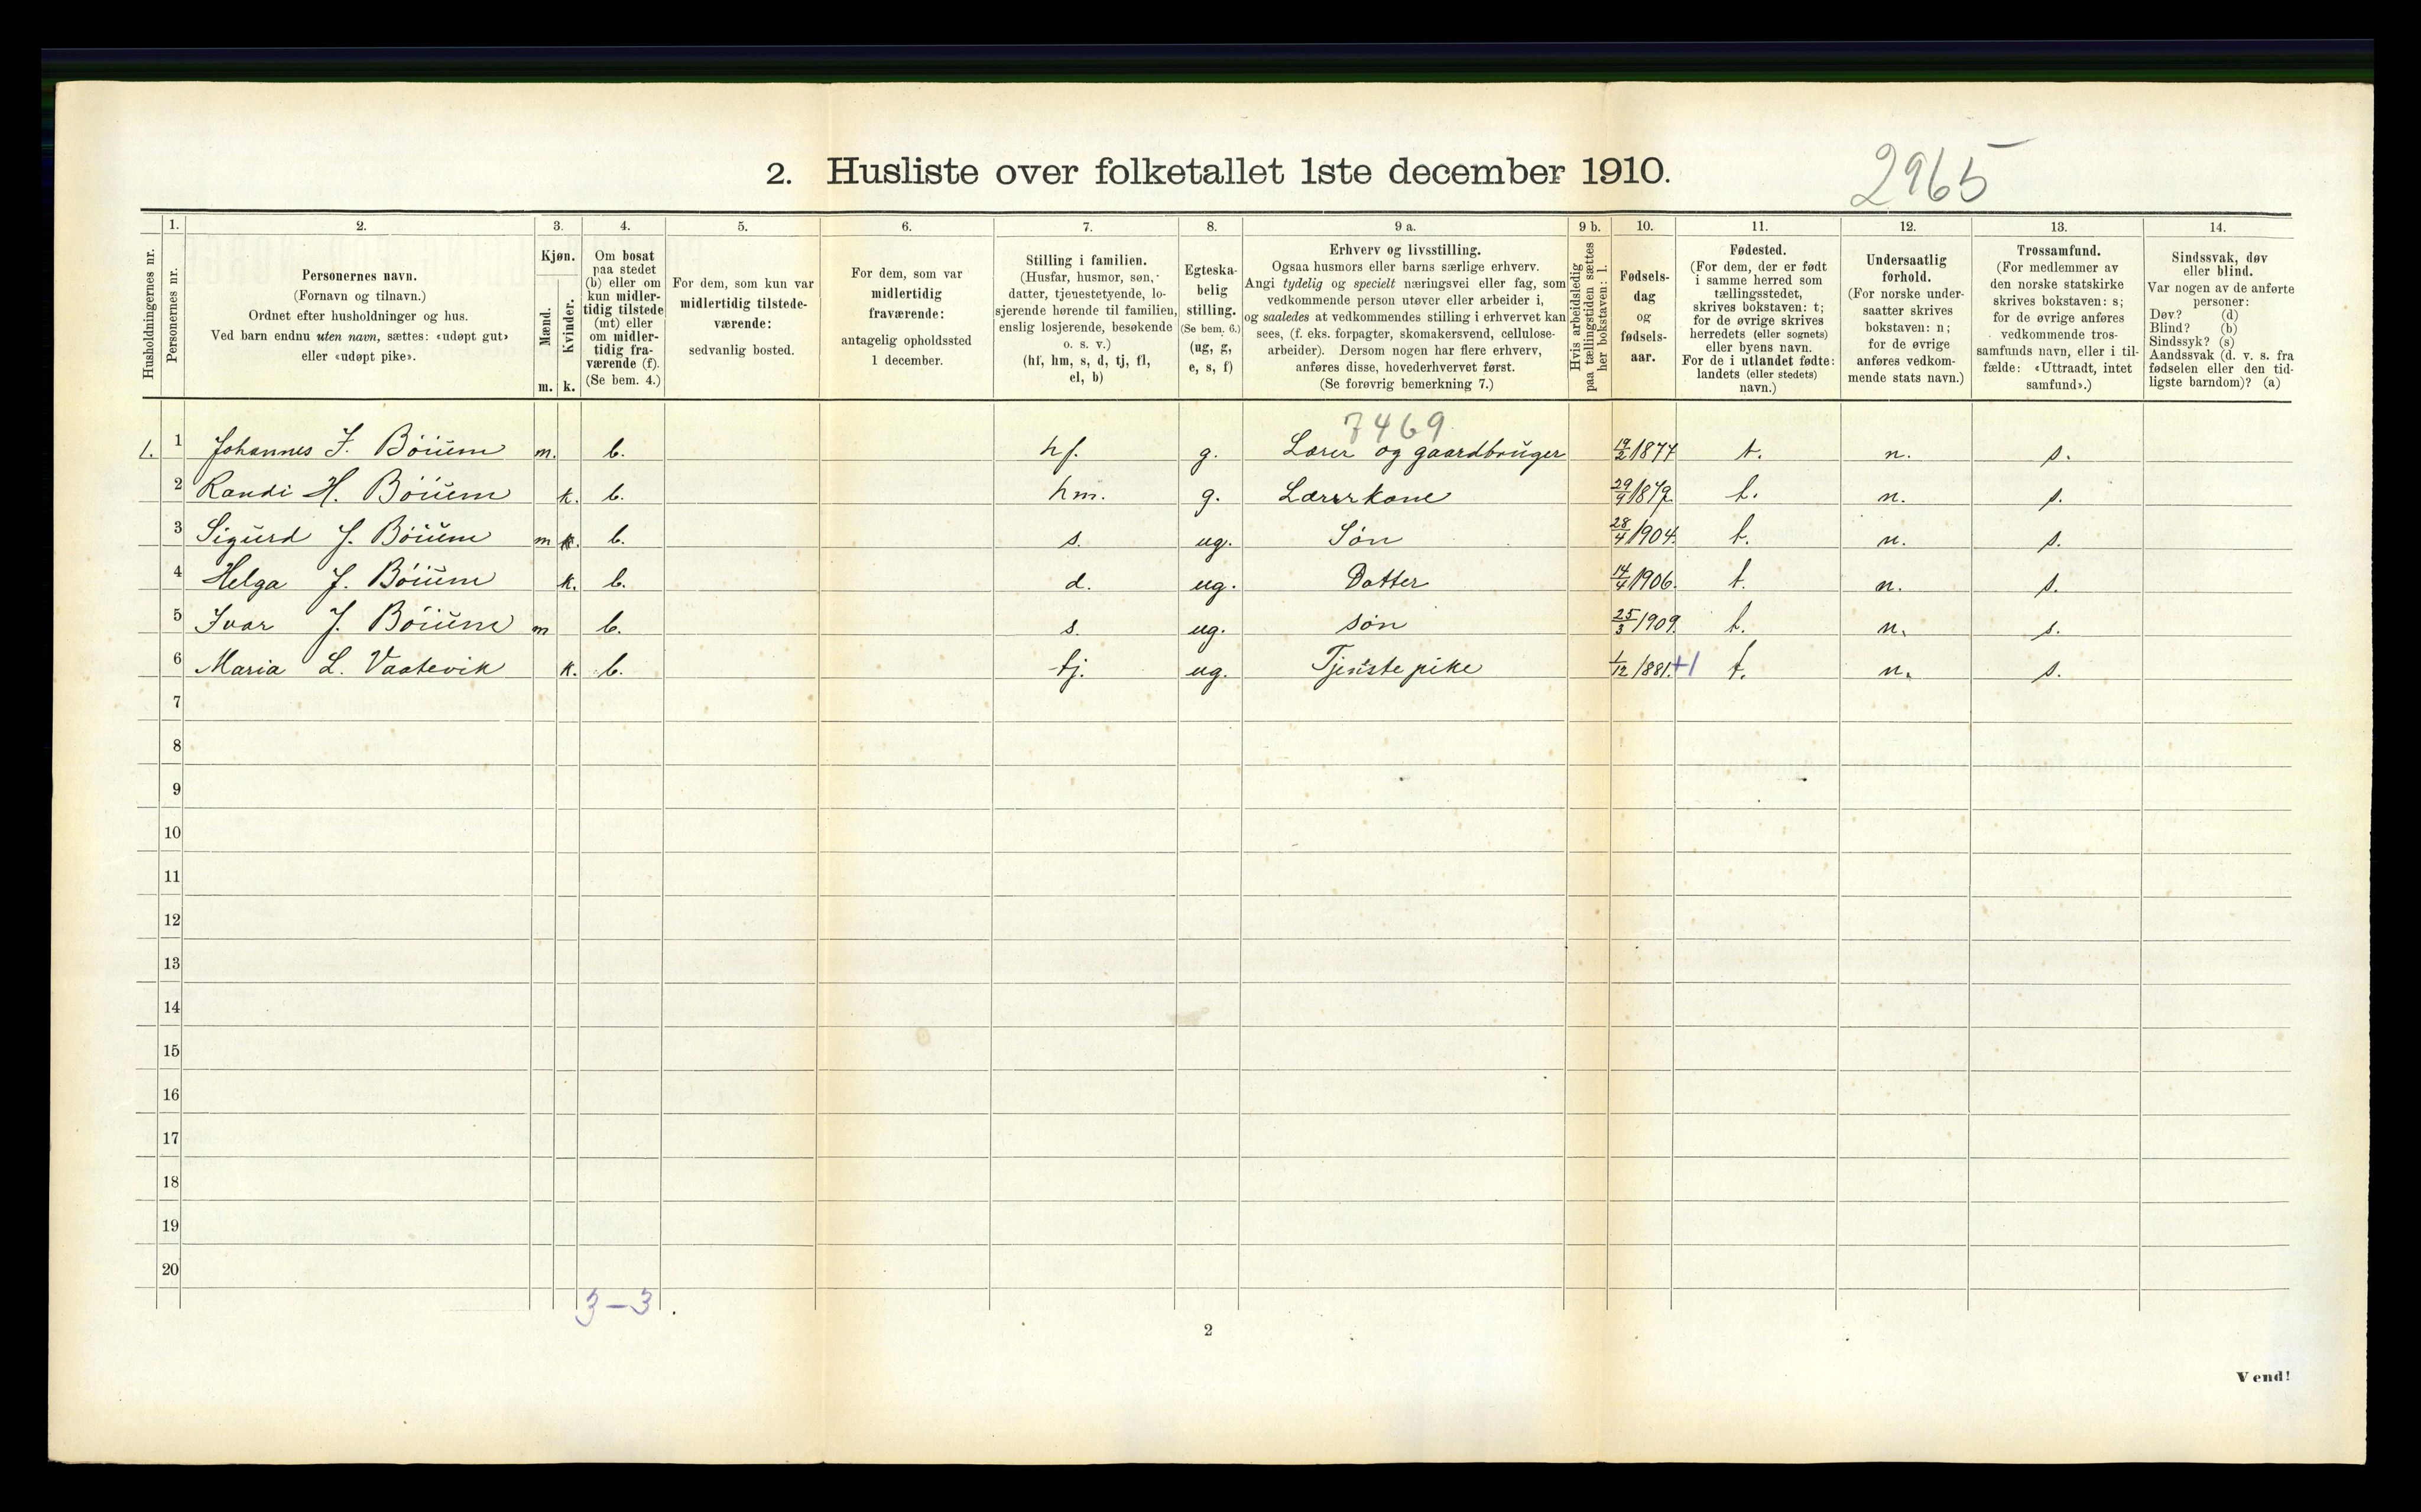 2. Husliste over folketallet 1ste december 1910.
2965
1. 2. 3. 4. 5. 6. 7. 8. 9 a. 9 b. 10. 11. 12. 13. 14.
Husholdningernes nr.
Personernes nr.
Personernes navn.
(Fornavn og tilnavn.)
Ordnet efter husholdninger og hus.
Ved barn endnu uten navn, sættes: «udøpt gut»
eller «udøpt pike».
Kjøn.
Mænd.
Kvinder.
m. k.
Om bosat
paa stedet
(b) eller om
kun midler-
tidig tilstede
(mt) eller
om midler-
tidig fra-
værende (f).
(Se bem. 4.)
For dem, som kun var
midlertidig tilstede-
værende:
sedvanlig bosted.
For dem, som var
midlertidig
fraværende:
antagelig opholdssted
1 december.
Stilling i familien.
(Husfar, husmor, søn,
datter, tjenestetyende, lo-
sjerende hørende til familien,
enslig losjerende, besøkende
o. s. v.)
(hf, hm, s, d, tj, fl,
el, b)
Egteska-
belig
stilling.
(Se bem. 6.)
(ug, g,
e, s, f)
Erhverv og livsstilling.
Ogsaa husmors eller barns særlige erhverv.
Angi tydelig og specielt næringsvei eller fag, som
vedkommende person utøver eller arbeider i,
og saaledes at vedkommendes stilling i erhvervet kan
sees, (f. eks. forpagter, skomakersvend, cellulose-
arbeider). Dersom nogen har flere erhverv,
anføres disse, hovederhvervet først.
(Se forøvrig bemerkning 7.)
Hvis arbeidsledig
paa tællingstiden sættes
her bokstaven: l.
Fødsels-
dag
og
fødsels-
aar.
Fødested.
(For dem, der er født
i samme herred som
tællingsstedet,
skrives bokstaven: t;
for de øvrige skrives
herredets (eller sognets)
eller byens navn.
For de i utlandet fødte:
landets (eller stedets)
navn.)
Undersaatlig
forhold.
(For norske under-
saatter skrives
bokstaven: n;
for de øvrige
anføres vedkom-
mende stats navn.)
Trossamfund.
(For medlemmer av
den norske statskirke
skrives bokstaven: s;
for de øvrige anføres
vedkommende tros-
samfunds navn, eller i til-
fælde: «Uttraadt, intet
samfund».)
Sindssvak, døv
eller blind.
Var nogen av de anførte
personer:
Døv? (d)
Blind? (b)
Sindssyk? (s)
Aandssvak (d. v. s. fra
fødselen eller den tid-
ligste barndom)? (a)
7469
1. 1 Johannes I. Böium m. b. hf. g. Lærer og gaardbruger 19/2 1877 t. n. s.
2 Randi H. Böium k. b. hm. g. Lærerkone 29/9 1879. t. n. s.
3 Sigurd J. Böium m k. b. s. ug. Søn 28/4 1904. t. n. s.
4 Helga J. Böium k. b. d. ug. Datter 14/4 1906. t. n. s.
5 Ivar J. Böium m b. s. ug. søn 25/3 1909. t. n. s.
6 Maria L. Vaatevik k. b. tj. ug. Tjenstepike 1/12 1881. +1 t. n. s.
7
8
9
10
11
12
13
14
15
16
17
18
19
20
3-3.
2
Vend!